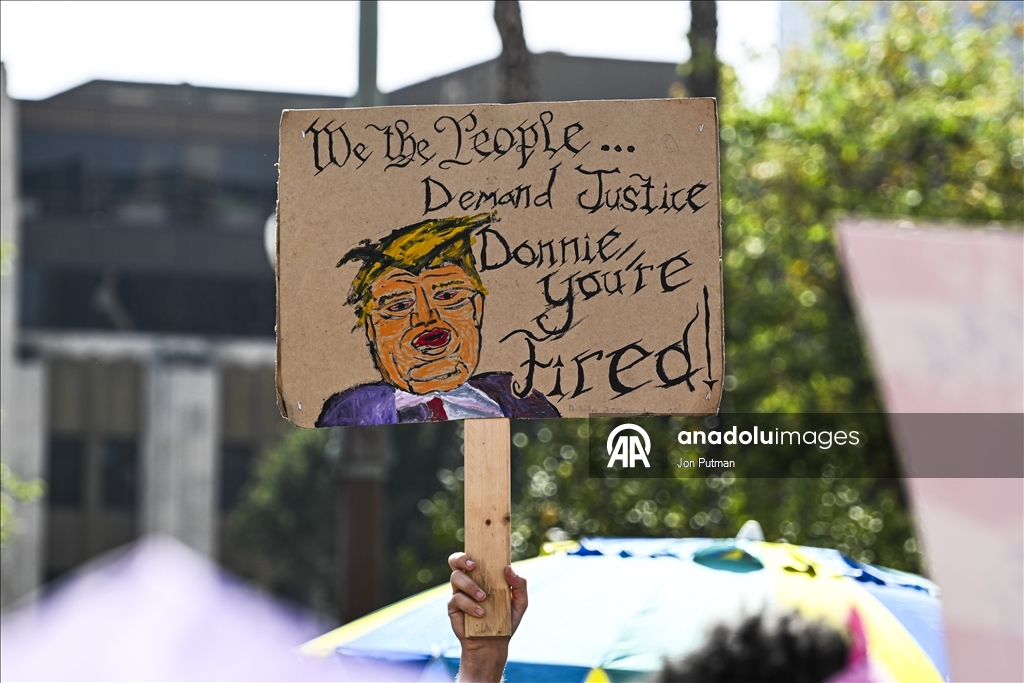 We the People...
Demand Justice
Donnie,
you're
Fired!
anadoluimages
Jon Putman